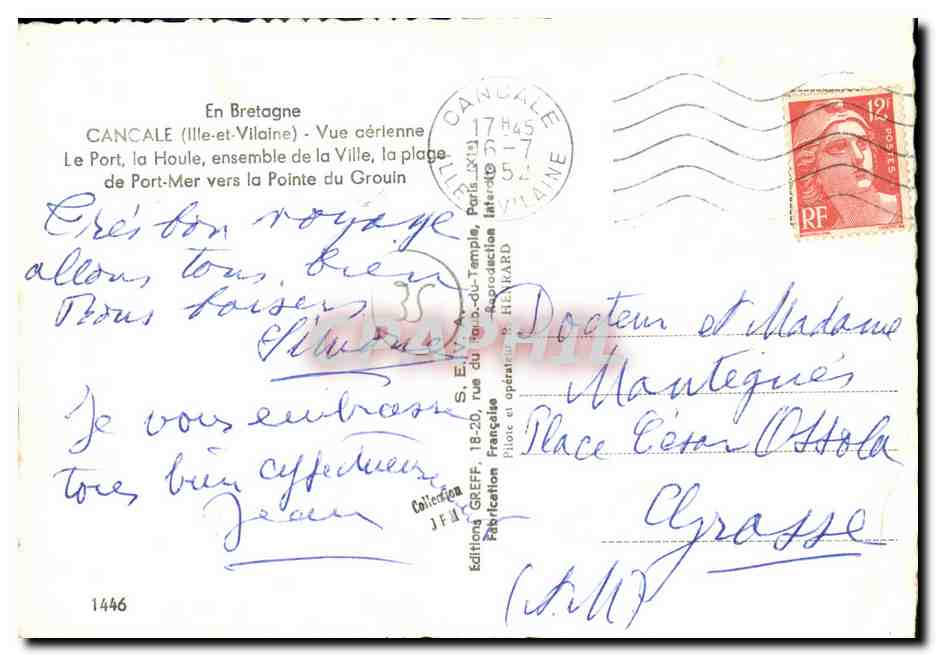 En Bretagne
CANCALE (Ille-et-Vilaine) - Vue aérienne
Le Port, la Houle, ensemble de la Ville, la plage
de Port-Mer vers la Pointe du Grouin
CANCALE
17 H 45
16-7
1952
ILLE VILAINE
12F
POSTES
RF
Très bon voyage
allons tous bien
Bons baisers
Simone
Je vous embrasse
tous bien affectueusement
Jean
35
Collection
JFM
Editions GREFF, 18-20, rue du Faub.-du-Temple, Paris (XIe)
S. E.
Fabrication Française
Reproduction Interdite
Pilote et opérateur R. HENRARD
CPAPHIL
Docteur et Madame
Mantegués
Place César Ossola
Grasse
(A.M)
1446